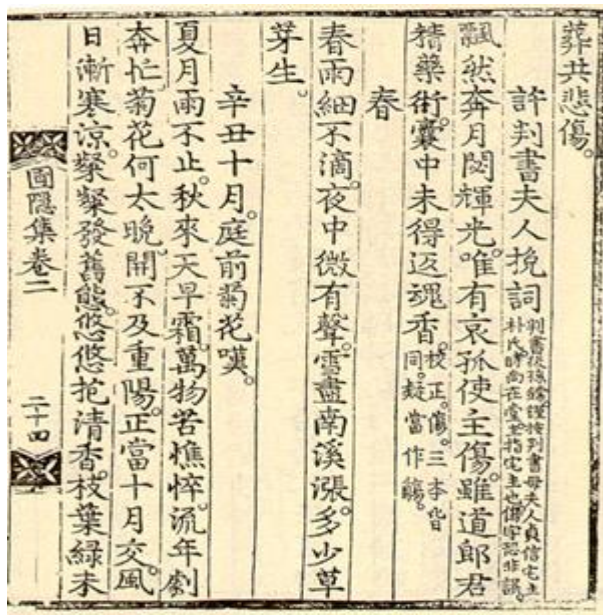 葬共悲傷。
許判書夫人挽詞
判書後孫謹按判書母夫人貞信宅主
朴氏時尚在堂主指宅主也傷字恐非誤。
飄然奔月閟輝光。唯有哀孤使主傷。雖道郎君
精藥術。囊中未得返魂香。
校正。傷。三本皆
同。疑當作觴。
春
春雨細不滴。夜中微有聲。雪盡南溪漲。多少草
芽生。
辛丑十月。庭前菊花嘆。
夏月雨不止。秋來天早霜。萬物苦憔悴。流年劇
奔忙。菊花何太晩。開不及重陽。正當十月交。風
日漸寒涼。粲粲發舊態。悠悠抱清香。枝葉綠未
圃隱集卷二
二十四